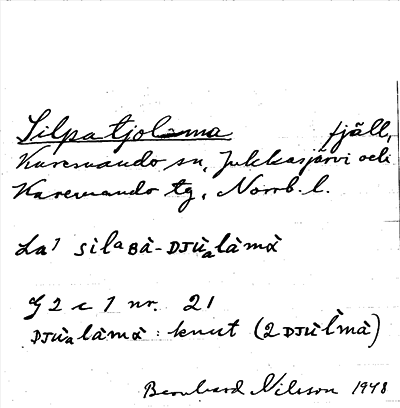 Silpatjolma fjäll,
Karesuando sn, Jukkasjärvi och
Karesuando tg, Norrb. l.
La1 sìlaBà-DJU̇̀alàmà
G2c1 nr. 21
DJU̇̀alàmà: knut (2DJU̇̀l̀mà)
Bernhard Nilsson 1948